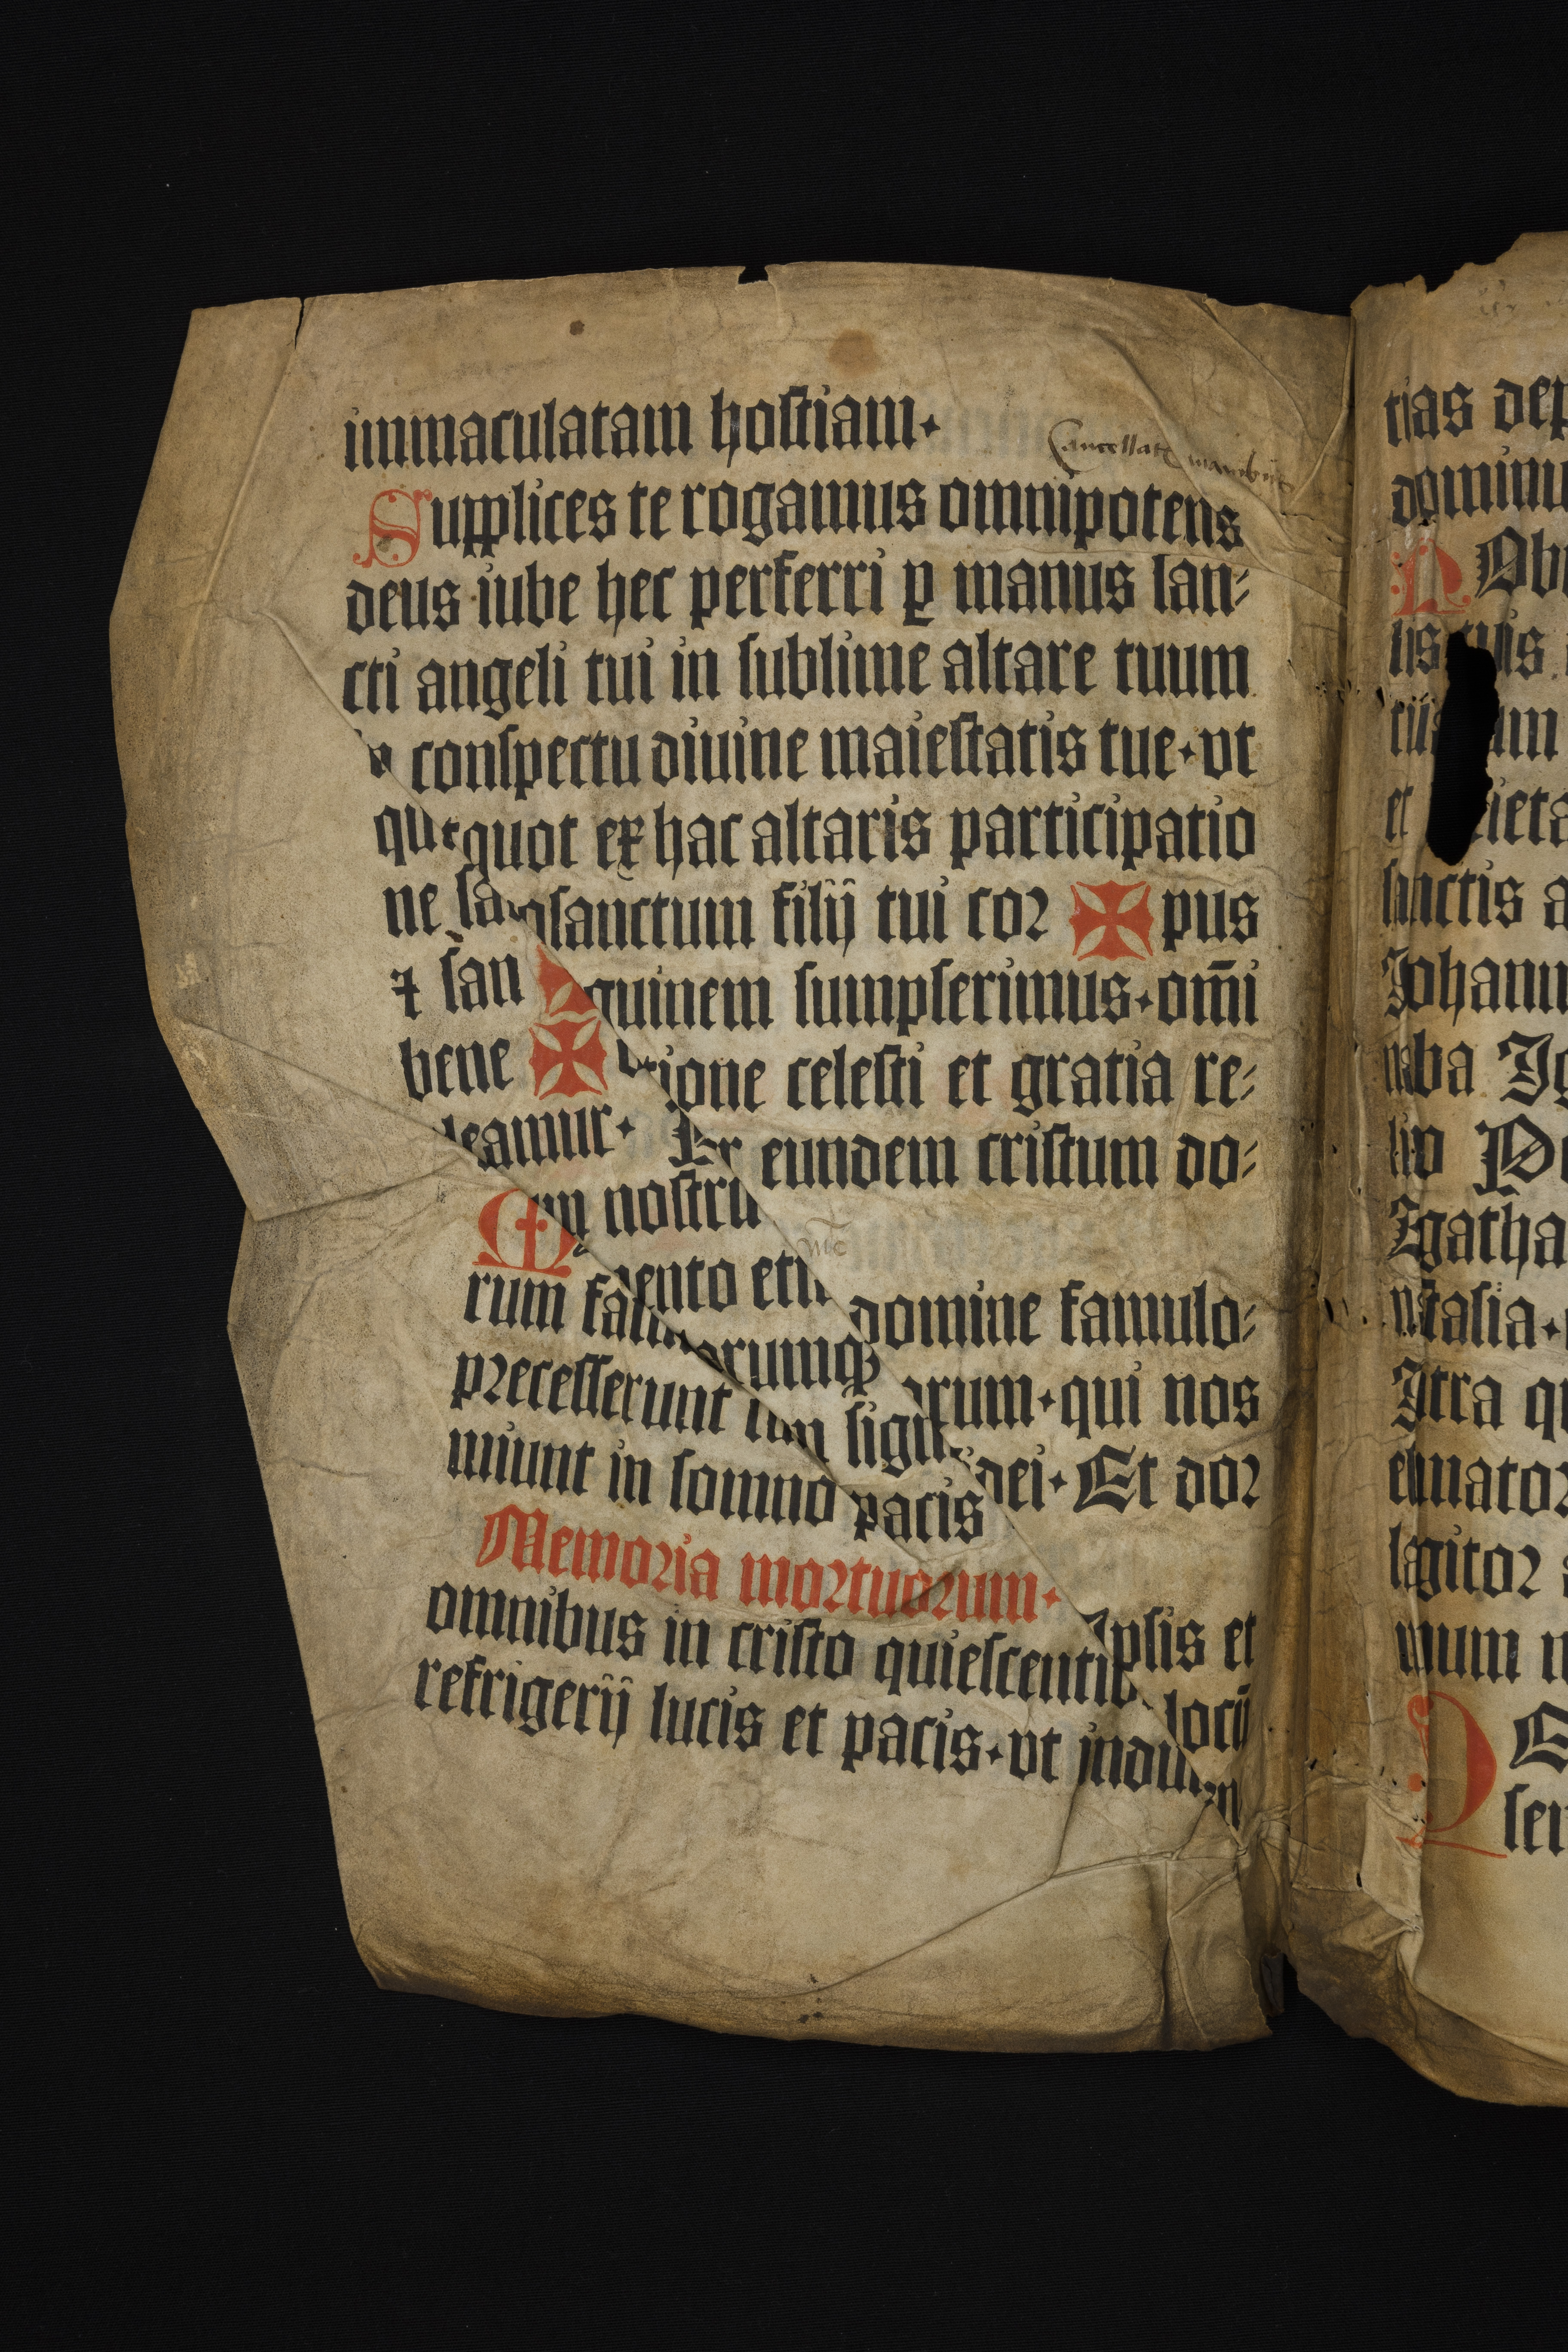 immaculatam hostiam·
Cancellatis manibus
Supplices te rogamus omnipotens
deus iube hec perferri ꝑ manus san⸗
cti angeli tui in sublime altare tuum
in conspectu diuine maiestatis tue·vt
quotquot ex hac altaris participatio
ne sacrosanctum filij tui cor ✠ pus
⁊ san ✠ guinem sumpserimus·om̄i
bene ✠ ctione celesti et gratia re⸗
leamur· Per eundem cristum do⸗
nostrū
Memento etiā domine famulo⸗
rum famularumqꝫ arum·qui nos
precesserunt cum signo dei· Et dor
miunt in somno pacis
Memoria mortuorum· Ipsis et
omnibus in cristo quiescentib locū
refrigerij lucis et pacis·vt indulgen
tias dep
dominu
Nob
lis tuis
um
et ieta
sanctis a
Johann
naba Ig
lino Pe
Agatha
nastasia·
Intra qu
estimator
largitor
mum n
sem